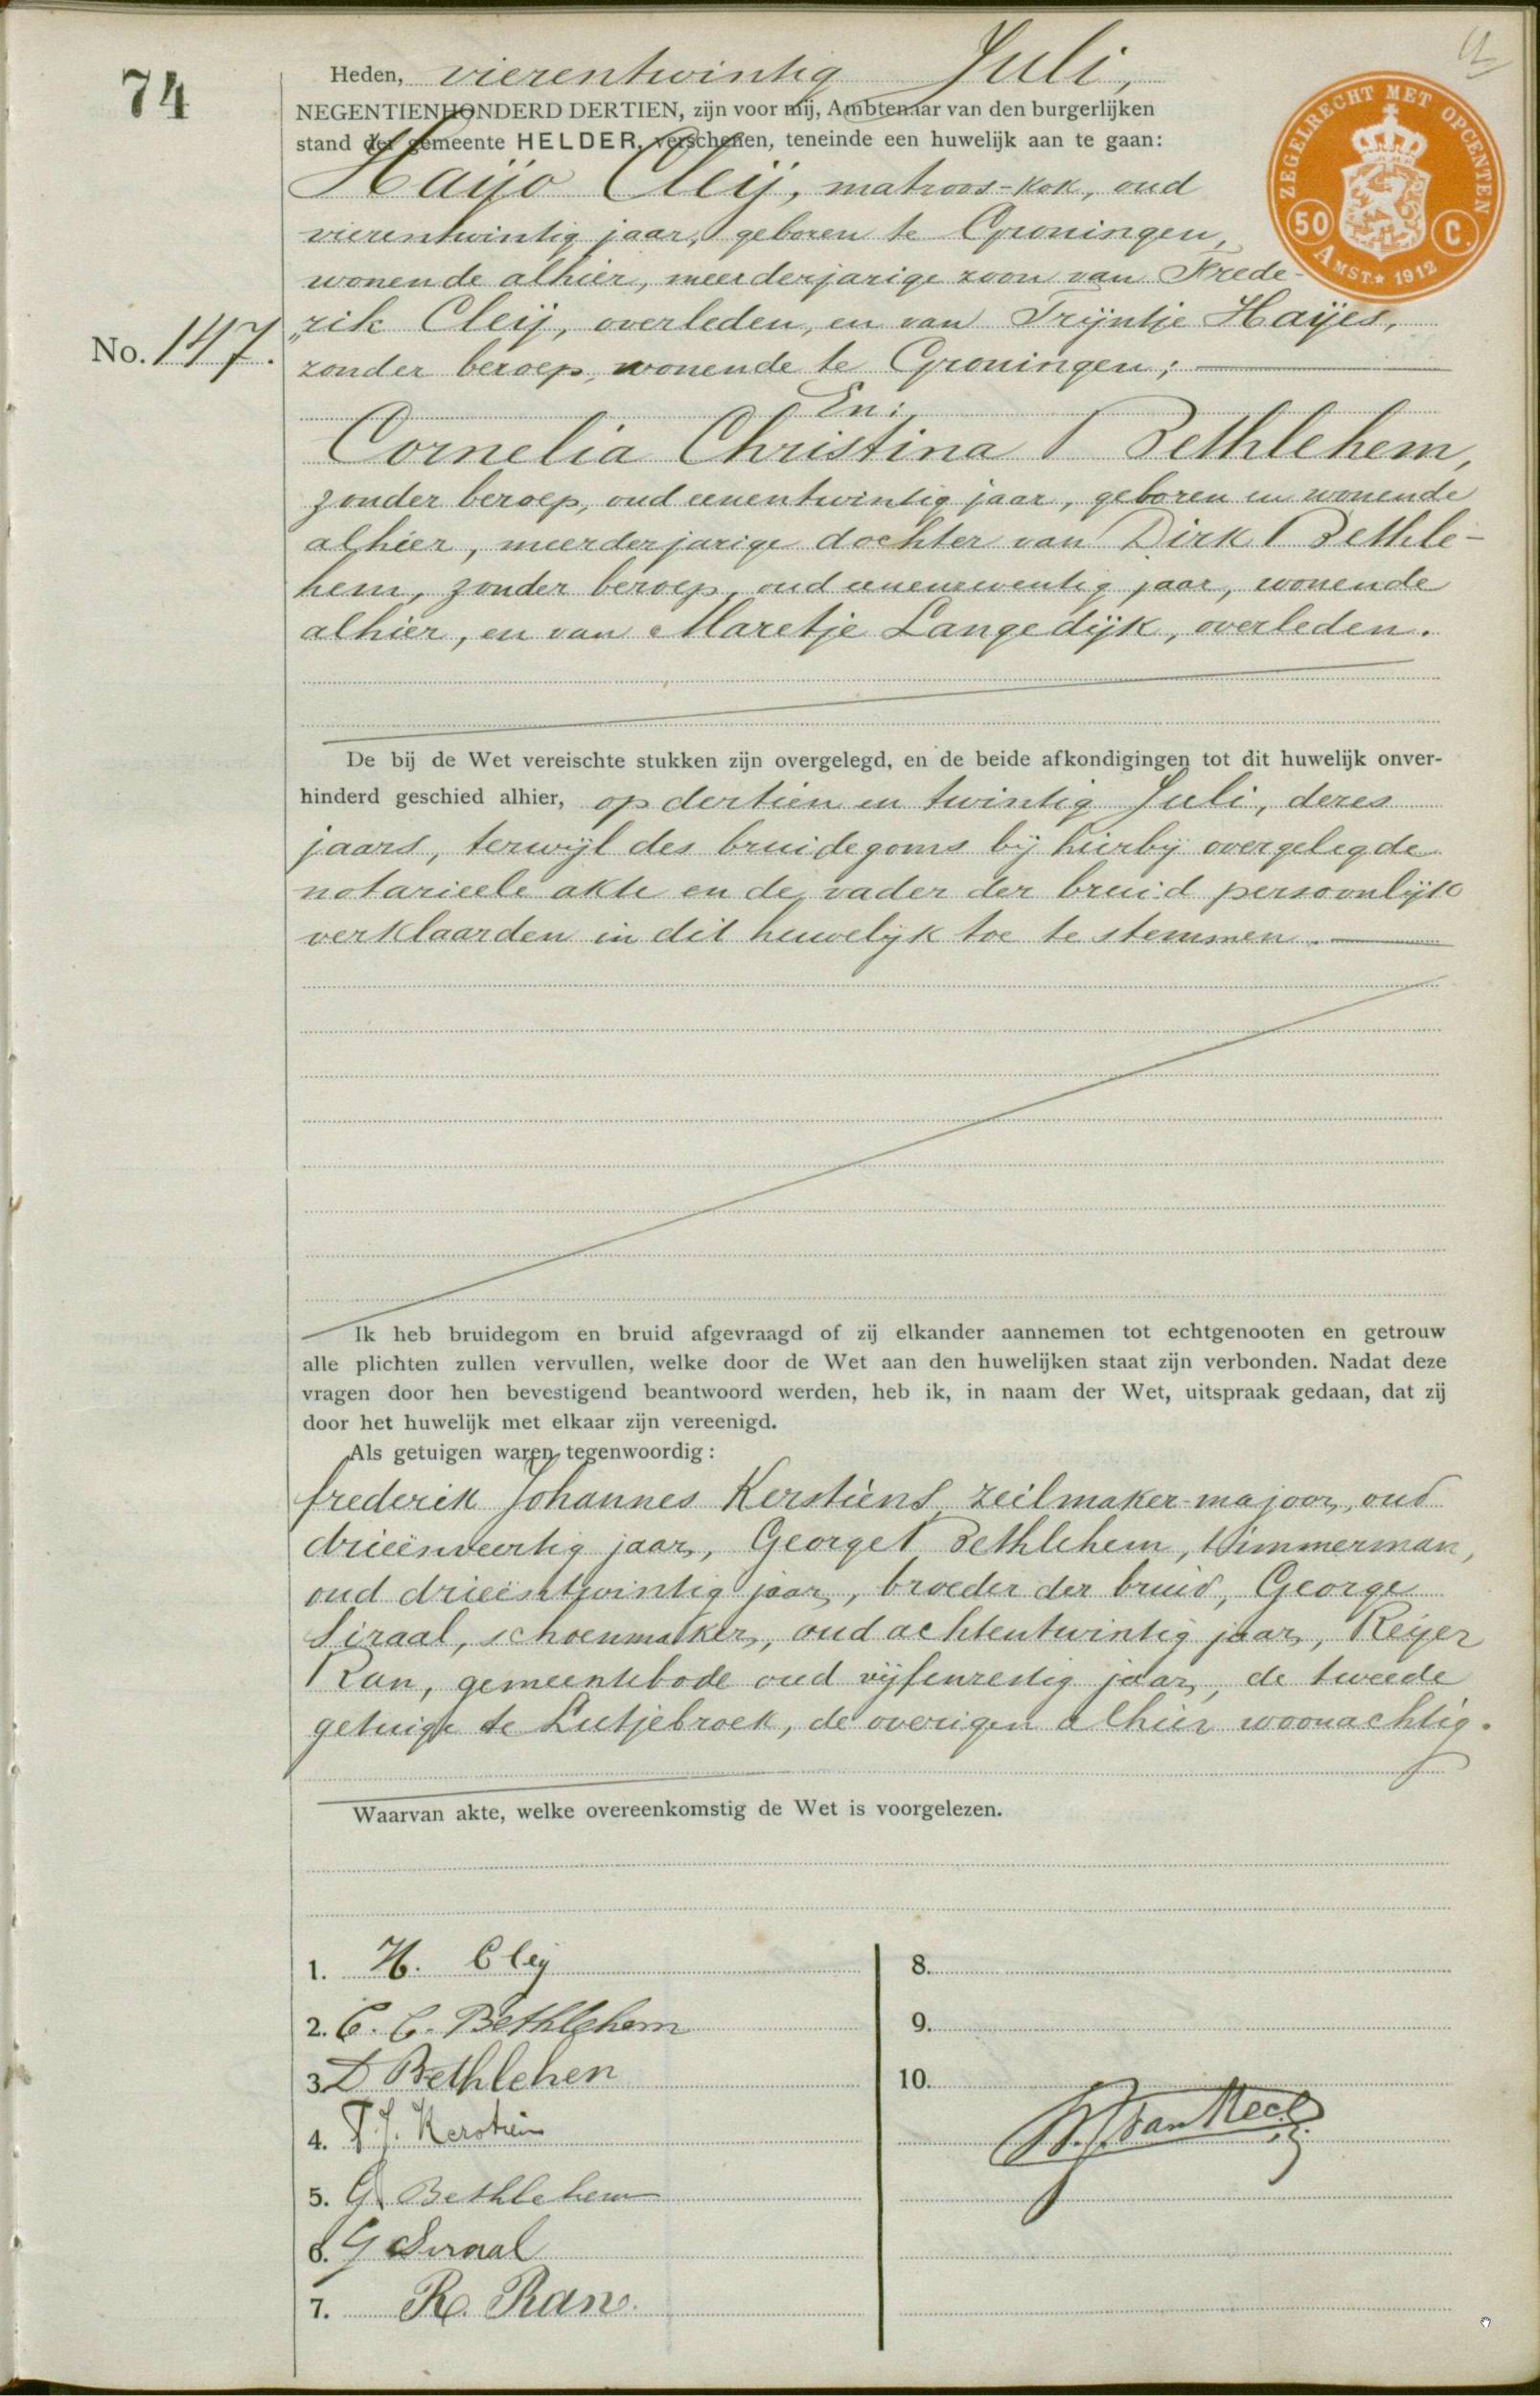 74
Heden, vierentwintig Juli,
NEGENTIENHONDERD DERTIEN, zijn voor mij, Ambtenaar van den burgerlijken
stand der gemeente HELDER, verschenen, teneinde een huwelijk aan te gaan:
Haijo Cleij, matroos-kok, oud
vierentwintig jaar, geboren te Groningen,
wonende alhier, meerderjarige zoon van Frede-
"rik Cleij, overleden, en van Trijntje Haijes,
No. 147.
zonder beroep, wonende te Groningen;
En:
Cornelia Christina Bethlehem,
zonder beroep, oud eenentwintig jaar, geboren en wonende
alhier, meerderjarige dochter van Dirk Bethle-
hem, zonder beroep, oud jaar, wonende
alhier, en van Maretje Langedijk, overleden.
De bij de Wet vereischte stukken zijn overgelegd, en de beide afkondigingen tot dit huwelijk onver-
hinderd geschied alhier, op dertien en twintig Juli, deres
jaars, terwijl des bruidegoms bij hierbij overgelegde
notarieele akte en de vader der bruid persoonlijk
verklaarden in dit huwelijk toe te stemmen.
Ik heb bruidegom en bruid afgevraagd of zij elkander aannemen tot echtgenooten en getrouw
alle plichten zullen vervullen, welke door de Wet aan den huwelijken staat zijn verbonden. Nadat deze
vragen door hen bevestigend beantwoord werden, heb ik, in naam der Wet, uitspraak gedaan, dat zij
door het huwelijk met elkaar zijn vereenigd.
Als getuigen waren tegenwoordig:
Frederik Johannes Kerstiens, zeilmaker-majoor, oud
drieënveertig jaar, George Bethlehem, timmerman,
oud drieëntwintig jaar, broeder der bruid, George
Siraal, schoenmaker, oud achtentwintig jaar, Reijer
Ran, gemeentebode oud vijfenzestig jaar, de tweede
getuige te Lutjebroek, de overigen alhier woonachtig.
Waarvan akte, welke overeenkomstig de Wet is voorgelezen.
1. H. Cleij
2. C. C. Bethlehem
3. D Bethlehem
4. F. J. Kerstien
5. G. Bethlehem
6. G Siraal
7. R. Ran.
8.
9.
10.
ZEGELRECHT MET OPCENTEN
50 C.
AMST. * 1912